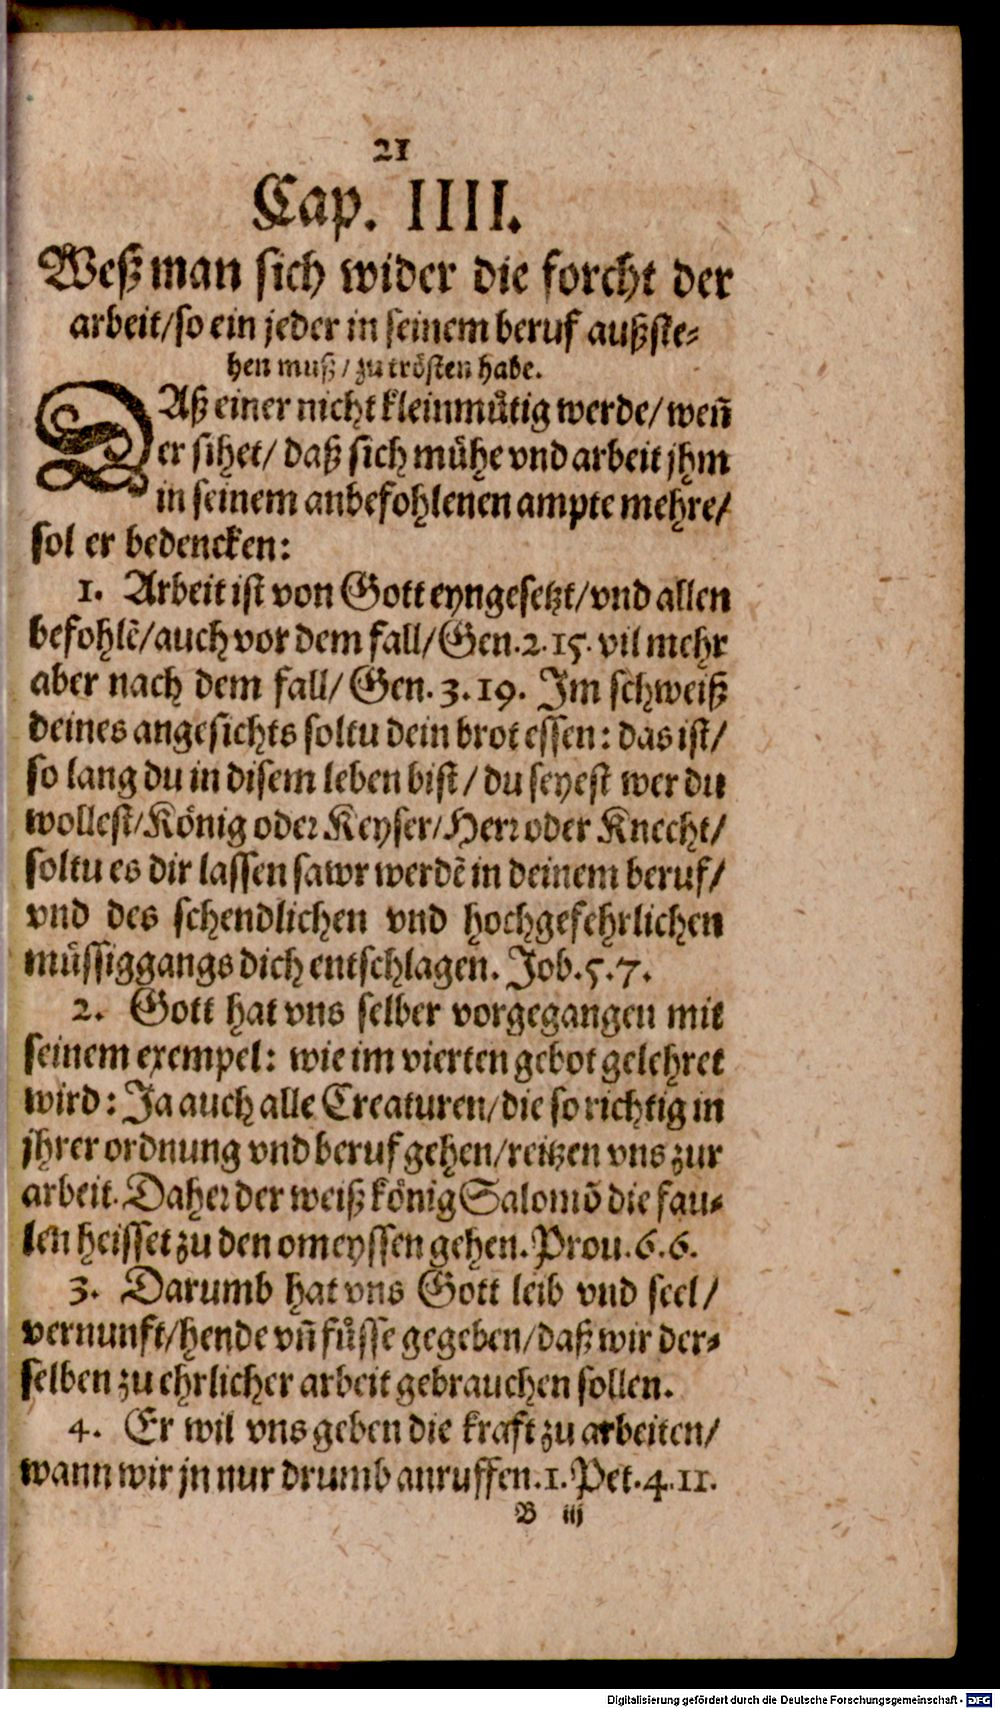 21
Cap. IIII.
Weß man sich wider die forcht der
arbeit/so ein jeder in seinem beruf außste-
hen muß/zu trösten habe.
DAß einer nicht kleinmütig werde/ weñ
er sihet/ daß sich mühe vnd arbeit jhm
in seinem anbefohlenen ampte mehre/
sol er bedencken:
1. Arbeit ist von Gott eyngesetzt/vnd allen
befohlẽ/auch vor dem fall/Gen.2.15. vil mehr
aber nach dem fall/ Gen. 3.19. Im schweiß
deines angesichts soltu dein brot essen: das ist/
so lang du in disem leben bist/ du seyest wer du
wollest/König oder Keyser/Herr oder Knecht/
soltu es dir lassen sawr werdẽ in deinem beruf/
vnd des schendlichen vnd hochgefehrlichen
müssiggangs dich entschlagen. Job.5.7.
2. Gott hat vns selber vorgegangen mit
seinem exempel: wie im vierten gebot gelehret
wird: Ja auch alle Creaturen/die so richtig in
jhrer ordnung vnd beruf gehen/reitzen vns zur
arbeit. Daher der weiß könig Salomõ die fau-
len heisset zu den omeyssen gehen. Prou.6.6.
3. Darumb hat vns Gott leib vnd seel/
vernunft/hende vñ füsse gegeben/daß wir der-
selben zu ehrlicher arbeit gebrauchen sollen.
4. Er wil vns geben die kraft zu arbeiten/
wann wir jn nur drumb anruffen.1.Pet.4.11.
B iij
Digitalisierung gefördert durch die Deutsche Forschungsgemeinschaft - DFG